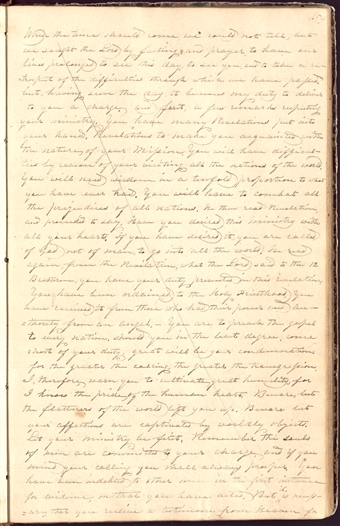 When the time should come we could not tell, but
we sought the Lord by fasting and prayer, to have our
lives prolonged to see this day, to see you, and to take a re-
trospect of the difficulties through which we have passed
but, having seen the day it becomes my duty to deliver
to you a charge, and first, a few remarks respecting
your ministry. You have many Revelations put into
your hands, Revelations to make you acquainted with
the nature of your Mission. You will have difficul-
ties by reason of your visiting all the nations of the world.
You will need wisdom in a tenfold proportion to what
you have ever had, You will have to combat all
the prejudices of all nations. He then read Revelation
and proceeded to say, Have you desired this ministry with
all your hearts, If you have desired it, you are called
of God, not of man, to go into all the world. He read
again from the Revelation, what the Lord said to the 12
Brethren, you have your duty presented in this Revelation
You have been ordained to the Holy Priesthood, You
have received it from those who had their power and au-
thority from an angel,- You are to preach the gospel
to every nation, should you in the least degree, come
short of your duty, great will be your condemnation
for the greater the calling the greater the transgression,
I, therefore, warn you to cultivate great humility, for
I know the pride of the human heart. Beware, lest
the flatterers of the world lift you up. Beware lest
your affections are captivated by worldly objects,
Let your ministry be first. Remember the souls
of men are committed to your charge, and if you
mind your calling, you shall always prosper. You
have been indebted to other men in the first instance
for evidence, on that you have acted. But is necess-
ary that you receive a testimony from Heaven for